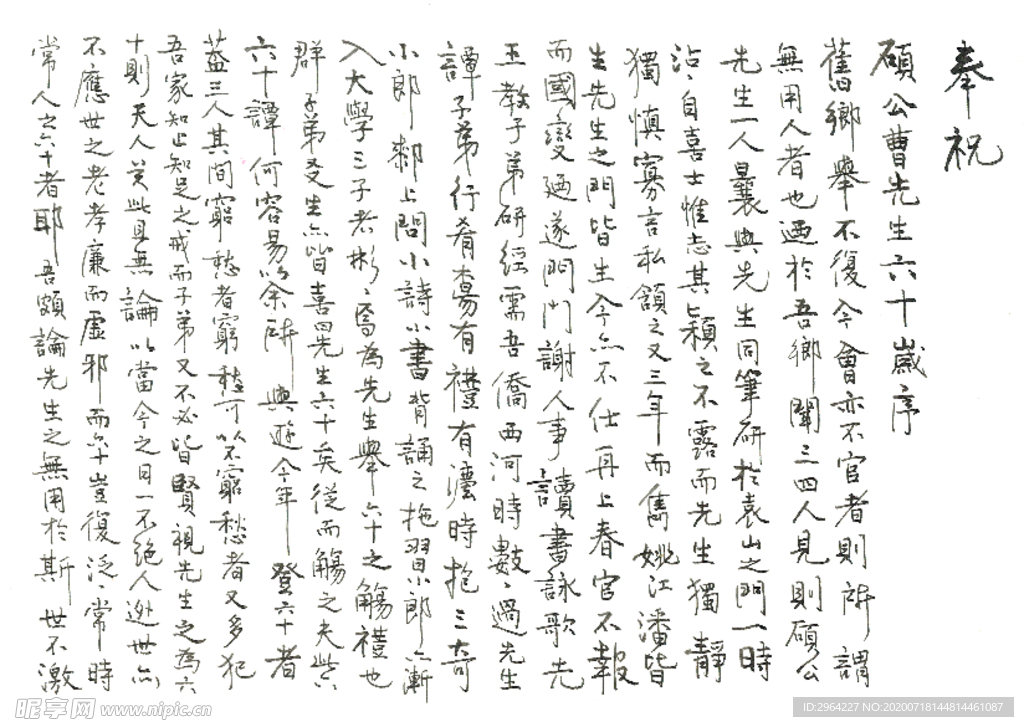 奉祝
碩公曹先生六十歲序
舊鄉舉不復今會亦不官者則所謂
無用人者也迺於吾鄉聞三四人見則碩公
先生一人曩與先生同筆研於袁山之門一時
沾沾自喜士惟志其穎之不露而先生獨靜
獨慎寡言私頷之又三年而雋姚江潘皆
生先生之門皆生今亦不仕再上春官不報
而國變迺遂門謝人事讀書詠歌先
王教子弟研經需吾僑西河時數數過先生
譚子弟行肴觴有禮有灋時抱三奇
小郎鄰上問小詩小書背誦之拖習小郎漸
入大學三子者彬彬焉為先生舉六十之觴禮也
群子弟爻生亦皆喜四先生六十矣從而觴之夫此六
六十譚何容易以余所與遊今年登六十者
蓋三人其間窮愁者窮愁可以不窮愁者又多犯
吾家知止知足之戒而子弟又不必皆賢視先生之為六
十則天人美此具無論以當今之目一不絕人逃世亦
不應世之老孝廉而虛邪而六十豈復泛泛常時
常人之六十者耶吾頗論先生之無用於斯世不激
昵享网 www.nipic.cn
ID:2964227 NO:20200718144814461087